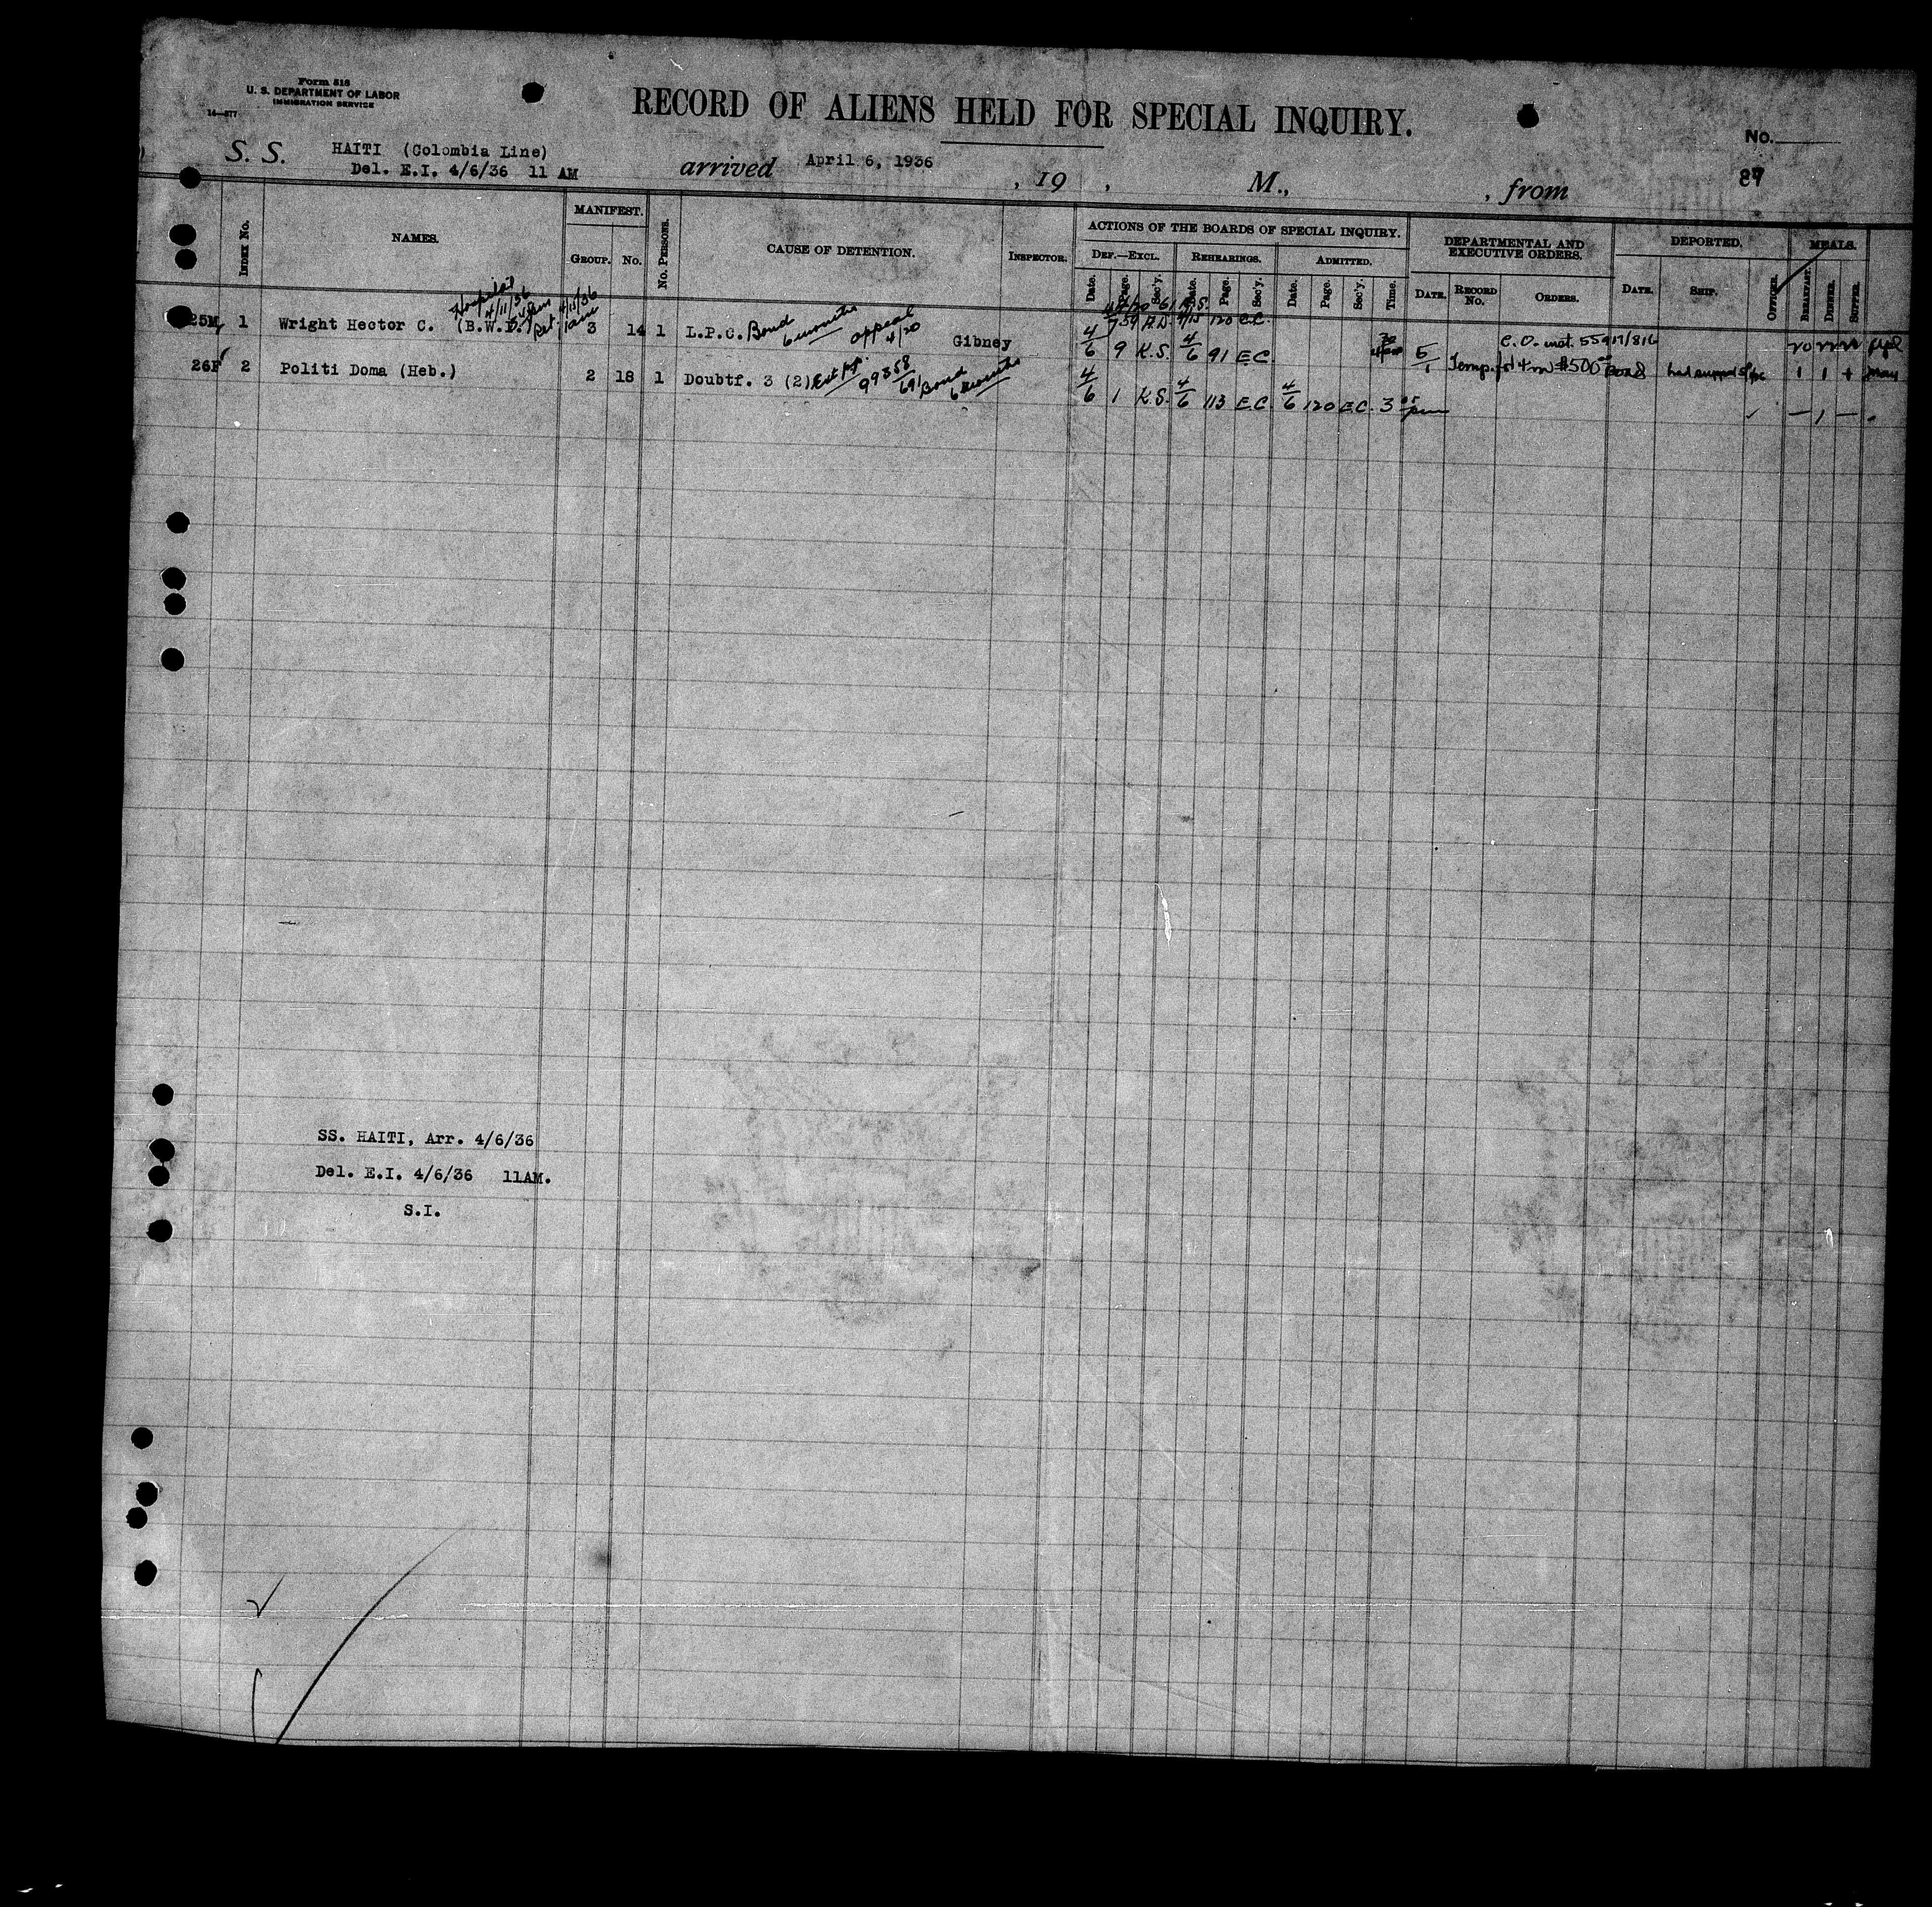 Form 516
U. S. DEPARTMENT OF LABOR
IMMIGRATION SERVICE
14—577
RECORD OF ALIENS HELD FOR SPECIAL INQUIRY.
No.
87
S. S. HAITI (Colombia Line) arrived April 6, 1936 , 19 , M., , from
Del. E.I. 4/6/36 11 AM
INDEX No. NAMES. MANIFEST. GROUP. No. No. PERSONS. CAUSE OF DETENTION. INSPECTOR. ACTIONS OF THE BOARDS OF SPECIAL INQUIRY. DEPARTMENTAL AND EXECUTIVE ORDERS. DEPORTED. MEALS.
DEF.—EXCL. REHEARINGS. ADMITTED.
Date. Page. Sec'y. Date. Page. Sec'y. Date. Page. Sec'y. Time. DATE. RECORD No. ORDERS. DATE. SHIP. OFFICER. BREAKFAST. DINNER. SUPPER.
Hospital 4/11/36
Ret. 4/15/36
25M 1 Wright Hector C. (B.W.I.) 3 14 1 L.P.C. Bond 6 months appeal 4/20 Gibney 4/6 9 K.S. 4/6 91 E.C. 5/1 Temp. 4 m $500 Bond
4/15 120 E.C.
26F 2 Politi Doma (Heb.) 2 18 1 Doubtf. 3 (2) 99358/691 Bond 6 months 4/6 1 K.S. 4/6 113 E.C. 4/6 120 E.C. 3 pm
SS. HAITI, Arr. 4/6/36
Del. E.I. 4/6/36 11AM.
S.I.